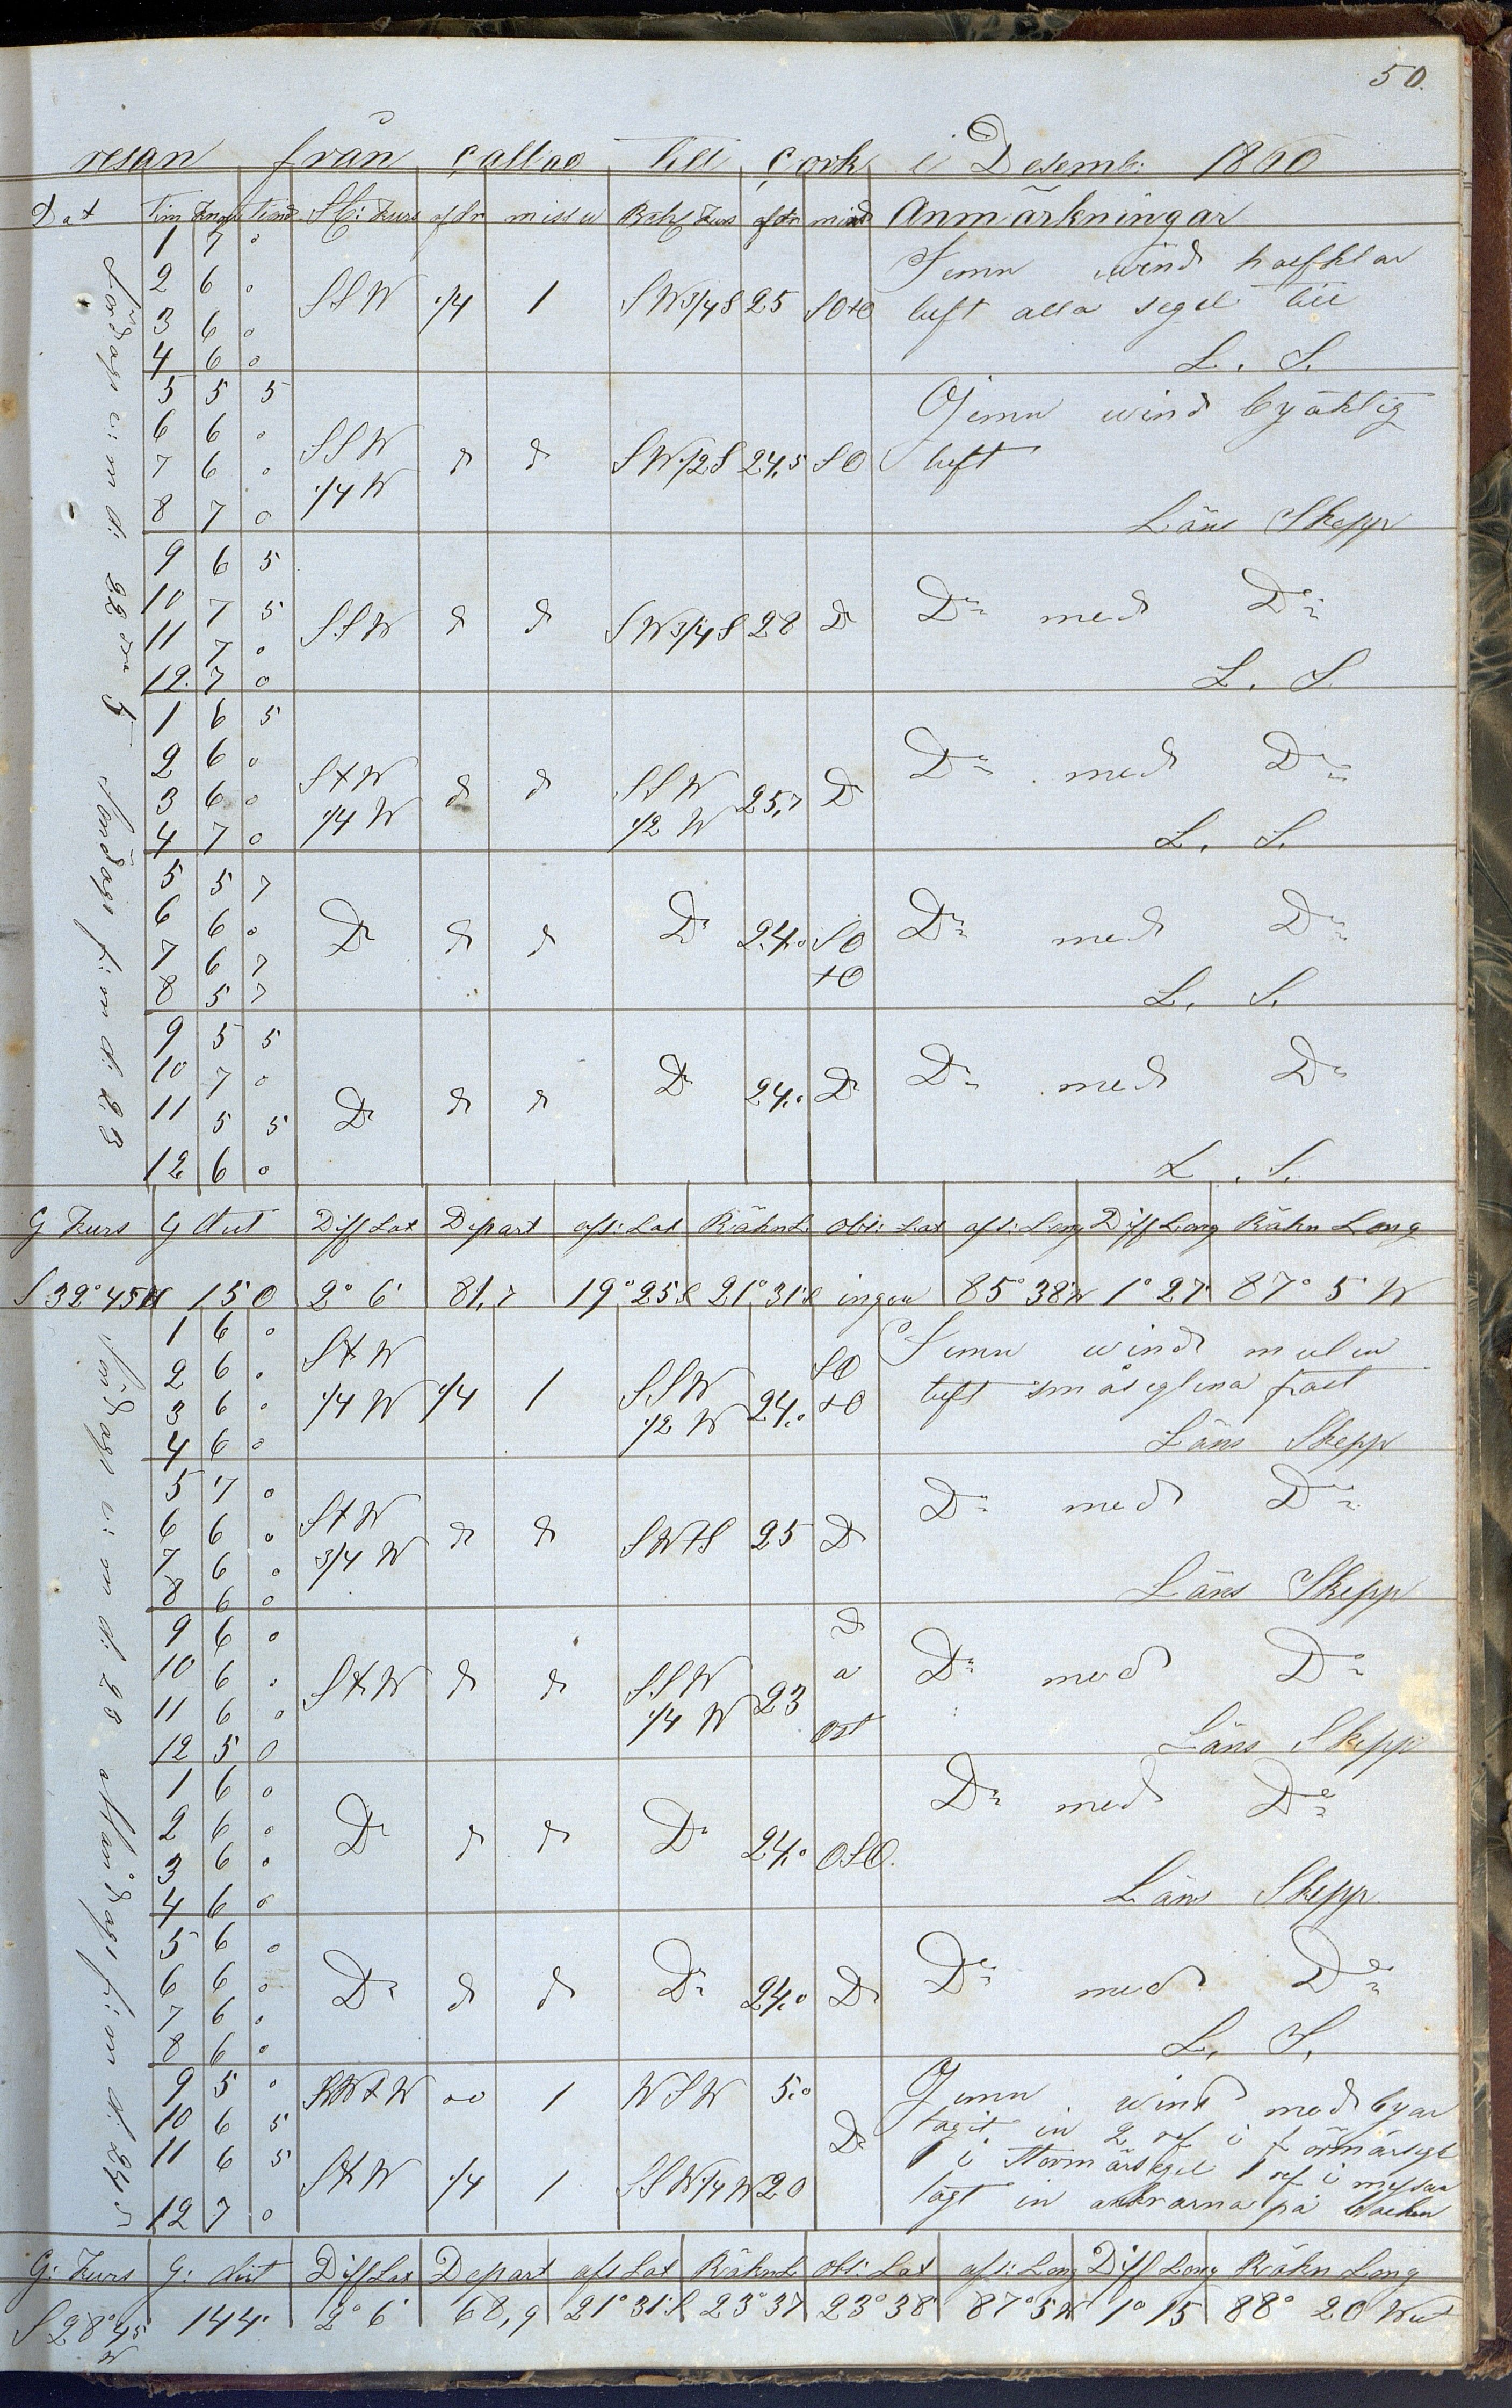 50.
resan från Callao till Cork i Desemb: 1860
Dat Tim Knop tind St: Kurs afdr missw Rätt Kurs afdr wind Anmärkningar
Lördags e: m d: 22 Söndags f: m d: 23
1 7 0 Jemn wind halfklar
2 6 0
3 6 0 SSW 1/4 1 SW3/4S 25 SOtO luft alla segel till
4 6 0 L. S.
5 5 5 Jemn wind byaktig
6 6 0
7 6 0 SSW 1/4 W d d SW1/2S 24,5 SO luft
8 7 0 Läns Skepp
9 6 5
10 7 5 SSW d d SW3/4S 28 D Do med Do
11 7 0
12. 7 0 L. S
1 6 5
2 6 0 StW d d SSW 25,7 D Do med Do
3 6 0 1/4 W 1/2 W
4 7 0 L. S.
5 5 7
6 6 0 Do d d Do 24.0 SO Do med Do
7 6 7 tO
8 5 7 L. S.
9 5 5
10 7 0 Do d d Do 24.0 Do Do med Do
11 5 5
12 6 0 L. S.
G Kurs G dist Diff Lat Depart aft: Lat Räkn L obs: Lat aft: Long Diff Long Räkn Long
S 32° 45 W 150 2° 6' 81,7 19° 25 S 21° 31' S ingen 85° 38 W 1° 27' 87° 5' W
Söndags e: m d: 23 Mandags f: m d: 24
1 6 0 StW SO Jemn wind mulen
2 6 0 1/4 W 1/4 1 SSW 24.0 tO luft småseglena fast
3 6 0 1/2 W
4 6 0 Läns Skepp
5 7 0 Do med Do
6 6 0 StW d d SWtS 25 D
7 6 0 3/4 W
8 6 0 Läns Skepp
9 6 0 D
10 6 0 StW d d SSW 23 a Do med Do
11 6 0 1/4 W ost
12 5 0 Läns Skepp
1 6 0 Do med Do
2 6 0 Do d d Do 24.0 OSO.
3 6 0
4 6 0 Läns Skepp
5 6 0
6 6 0 Do d d Do 24.0 D Do med Do
7 6 0
8 6 0 L. S.
9 5 0 00 1 WSW 5.0 Jemn wind med byar
10 6 5 D tagit in 2 ref i förmärsegl
11 6 5 StW 1/4 1 SSW1/4W 20 1 i Stormärsegel 1 ref i
12 7 0 tagt in ankrarna på backen
G: Kurs G: dist Diff Lat Depart aft Lat Räkn L obs: Lat aft: Long Diff Long Räkn Long
S 28° 45 W 144. 2° 6' 68,9 21° 31' S 23° 37 23° 38' 87° 5 W 1° 15 88° 20 West